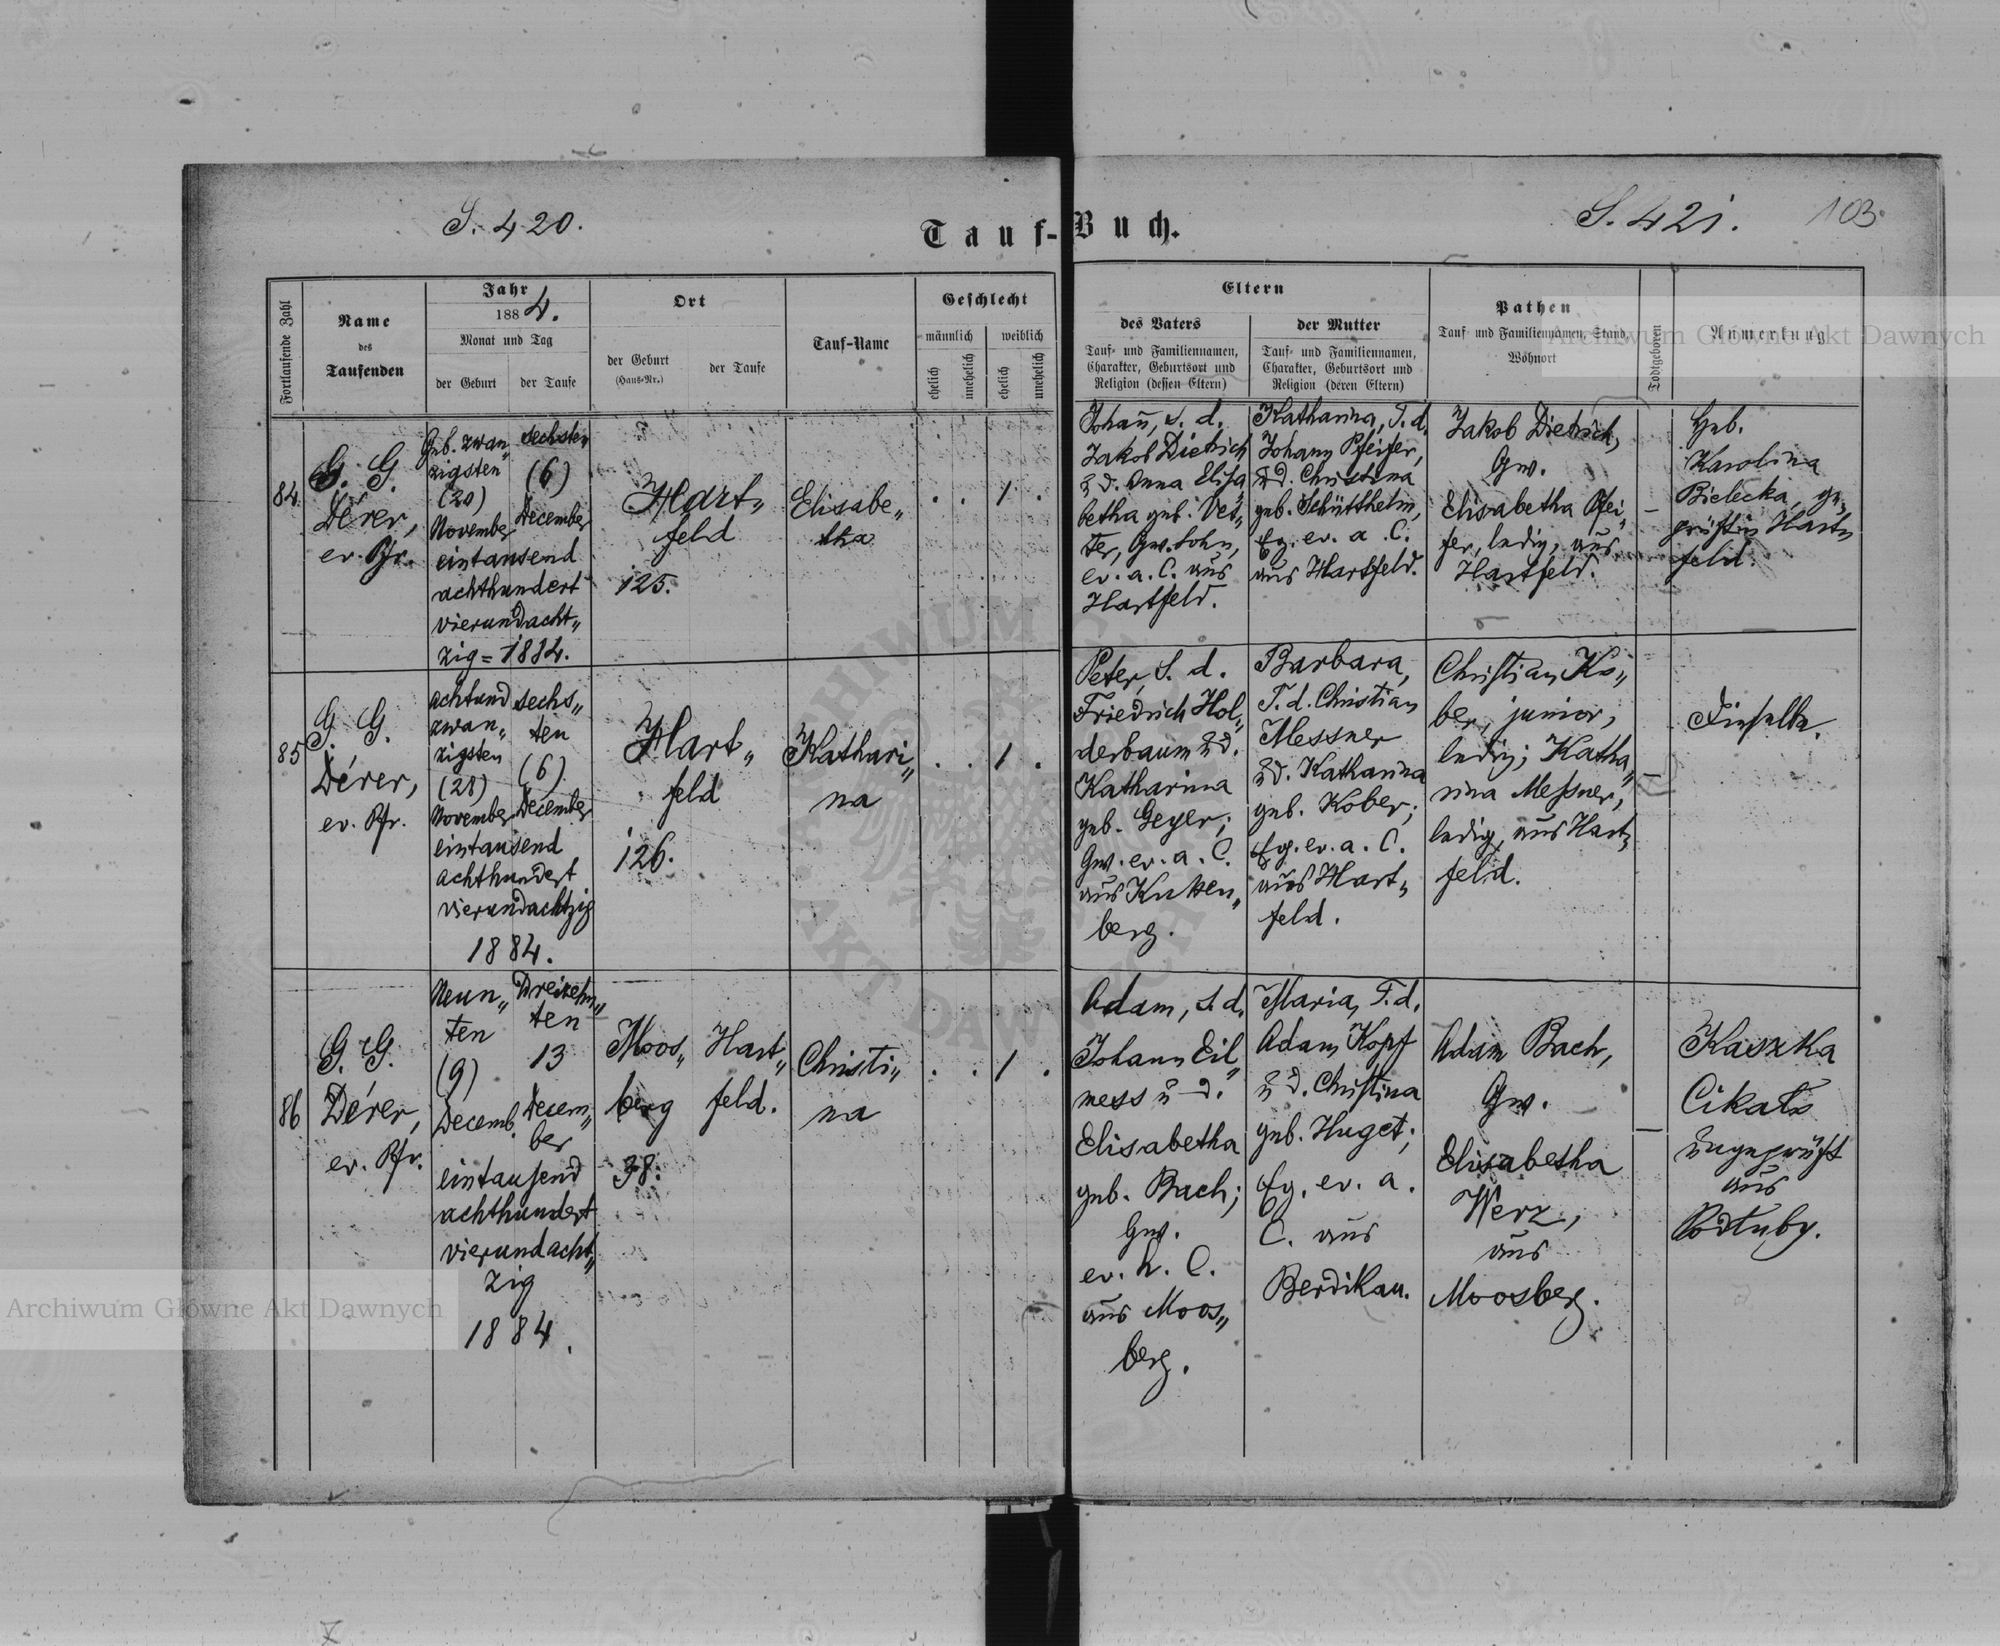 S. 420.
S. 421.
103.
Tauf-Buch.
Fortlaufende Zahl
Name
des
Taufenden
Jahr
1884.
Monat und Tag
der Geburt
der Taufe
Ort
der Geburt
(Haus-Nr.)
der Taufe
Tauf-Name
Geschlecht
männlich
weiblich
ehelich
unehelich
ehelich
unehelich
Eltern
des Vaters
Tauf- und Familiennamen,
Charakter, Geburtsort und
Religion (dessen Eltern)
der Mutter
Tauf- und Familiennamen,
Charakter, Geburtsort und
Religion (deren Eltern)
Pathen
Tauf- und Familiennamen, Stand,
Wohnort
Todtgeboren
Anmerkung
84.
G. G.
Dérer,
ev. Pfr.
Geb. zwan„
zigsten
(20)
November
sechsten
(6)
December
eintausend
achthundert
vierundacht„
zig = 1884.
Hart„
feld
125.
Elisabe„
tha
. . 1 .
Johann, S. d.
Jakob Dietrich
u. d. Anna Elisa„
betha geb. Vet„
ter, Gw. Sohn,
ev. a. C. aus
Hartfeld.
Katharina, T. d.
Johann Pfeifer,
u. d. Christina
geb. Schütthelm,
Eg. ev. a. C.
aus Hartfeld.
Jakob Dietrich,
Gw.
Elisabetha Pfei„
fer, ledig, aus
Hartfeld.
–
Heb.
Karolina
Bielecka, ge„
prüft in Hart„
feld.
85
G. G.
Dérer,
ev. Pfr.
achtund
zwan„
zigsten
(28)
November
sechs„
ten
(6)
December
eintausend
achthundert
vierundachtzig
1884.
Hart„
feld
126.
Kathari„
na
. . 1 .
Peter, S. d.
Friedrich Hol„
derbaum u. d.
Katharina
geb. Geyer;
Gw. ev. a. C.
aus Kutten„
berg.
Barbara,
T. d. Christian
Messner
u. d. Katharina
geb. Kober;
Eg. ev. a. C.
aus Hart„
feld.
Christian Ko„
ber, junior,
ledig; Katha„
rina Messner,
ledig, aus Hart„
feld.
–
Dieselbe.
86
G. G.
Dérer,
ev. Pfr.
Neun„
ten
(9)
Decemb.
Dreizehn„
ten
13
Decem„
ber
eintausend
achthundert
vierundacht„
zig
1884.
Moos„
berg
38.
Hart„
feld.
Christi„
na
. . 1 .
Adam, S. d.
Johann Eil„
mess u. d.
Elisabetha
geb. Bach;
Gw.
ev. h. C.
aus Moos„
berg.
Maria, T. d.
Adam Kopf
u. d. Christina
geb. Huget;
Eg. ev. a.
C. aus
Berdikau.
Adam Bach,
Gw.
Elisabetha
Werz,
aus
Moosberg.
–
Kaszka
Cikało
ungeprüft
aus
Podłuby.
Archiwum Główne Akt Dawnych
Archiwum Główne Akt Dawnych
ARCHIWUM
AKT DAWNYCH